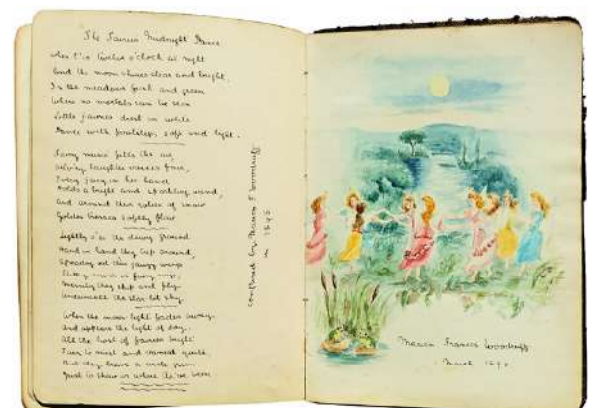 The Fairies Midnight Dance
When t'is twelve o'clock at night
And the moon shines clear and bright,
In the meadows fresh and green
Where no mortals can be seen
Little fairies drest in white
Dance with footsteps soft and light.
Fairy music fills the air,
laughter voices
Every fairy in her hand
Holds a bright and sparkling wand,
And around their robes of snow
Golden tresses softly flow
Lightly o'er the dewy ground
Hand in hand they trip around,
Spreading out their gauzy wings
Merrily they skip and fly
Underneath the star lit sky.
When the moon light fades away
And appears the light of day,
All the host of fairies bright
Turn to mist and vanish quite,
And they leave a circle green
Just to show us where they've been
composed by Maura F. Woodruff
in 1895
Maura Frances Woodruff